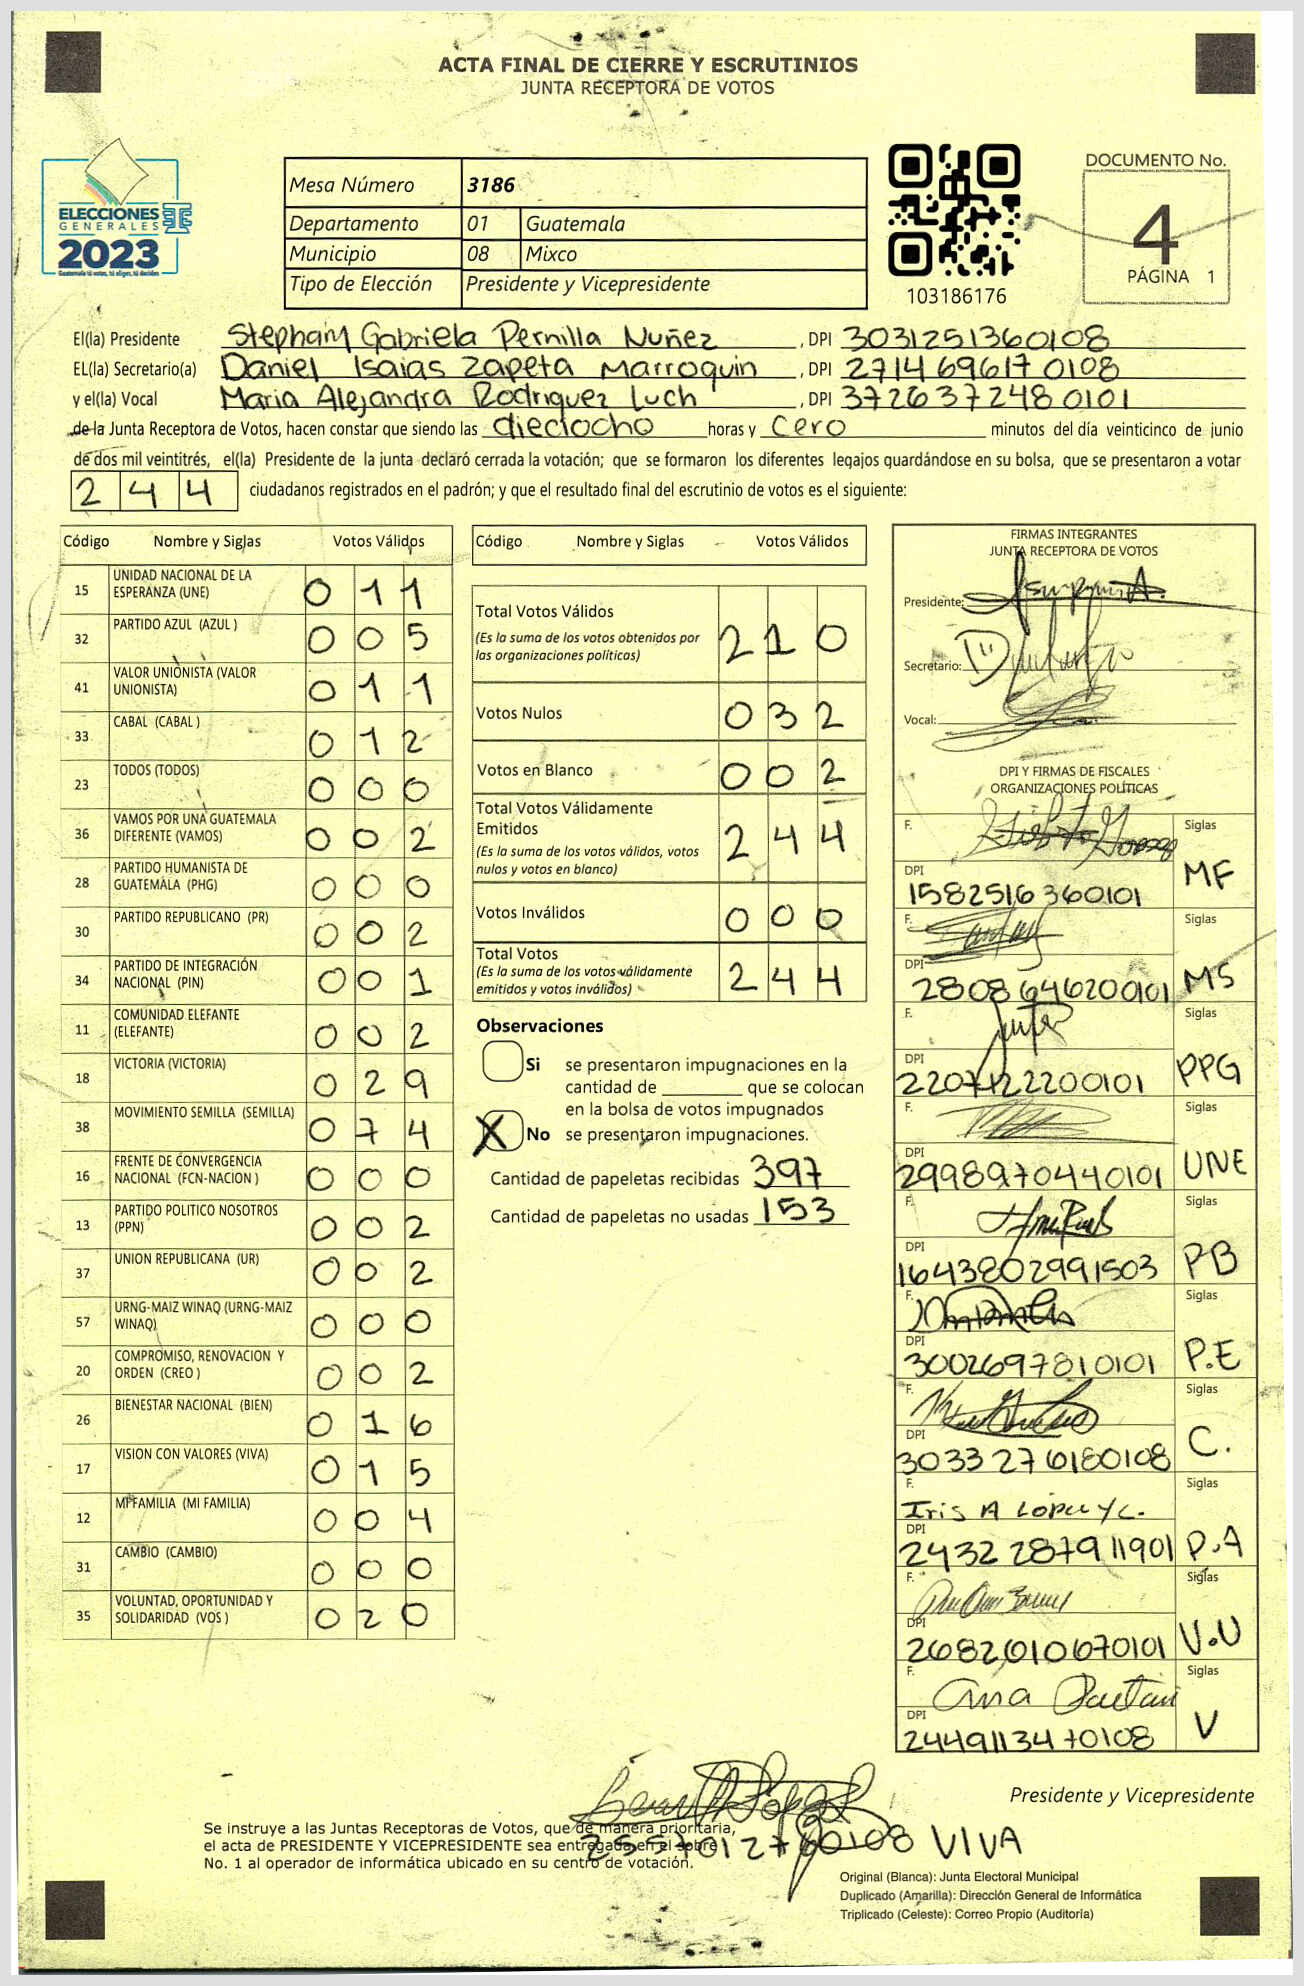 ACTA FINAL DE CIERRE Y ESCRUTINIOS
JUNTA RECEPTORA DE VOTOS
ELECCIONES
GENERALES
2023
Guatemala tú votas, tú eliges, tú decides
Mesa Número 3186
Departamento 01 Guatemala
Municipio 08 Mixco
Tipo de Elección Presidente y Vicepresidente
103186176
DOCUMENTO No.
4
PÁGINA 1
El(la) Presidente Stephany Gabriela Pernilla Nuñez, DPI 3031251360108
EL(la) Secretario(a) Daniel Isaias Zapeta Marroquin, DPI 2714696170108
y el(la) Vocal Maria Alejandra Rodriguez Luch, DPI 3726372480101
de la Junta Receptora de Votos, hacen constar que siendo las dieciocho horas y cero minutos del día veinticinco de junio
de dos mil veintitrés, el(la) Presidente de la junta declaró cerrada la votación; que se formaron los diferentes legajos guardándose en su bolsa, que se presentaron a votar
244 ciudadanos registrados en el padrón; y que el resultado final del escrutinio de votos es el siguiente:
Código Nombre y Siglas Votos Válidos
15 UNIDAD NACIONAL DE LA ESPERANZA (UNE) 011
32 PARTIDO AZUL (AZUL ) 005
41 VALOR UNIONISTA (VALOR UNIONISTA) 011
33 CABAL (CABAL ) 012
23 TODOS (TODOS) 000
36 VAMOS POR UNA GUATEMALA DIFERENTE (VAMOS) 002
28 PARTIDO HUMANISTA DE GUATEMALA (PHG) 000
30 PARTIDO REPUBLICANO (PR) 002
34 PARTIDO DE INTEGRACIÓN NACIONAL (PIN) 001
11 COMUNIDAD ELEFANTE (ELEFANTE) 002
18 VICTORIA (VICTORIA) 029
38 MOVIMIENTO SEMILLA (SEMILLA) 074
16 FRENTE DE CONVERGENCIA NACIONAL (FCN-NACION ) 000
13 PARTIDO POLITICO NOSOTROS (PPN) 002
37 UNION REPUBLICANA (UR) 002
57 URNG-MAIZ WINAQ (URNG-MAIZ WINAQ) 000
20 COMPROMISO, RENOVACION Y ORDEN (CREO ) 002
26 BIENESTAR NACIONAL (BIEN) 016
17 VISION CON VALORES (VIVA) 015
12 MI FAMILIA (MI FAMILIA) 004
31 CAMBIO (CAMBIO) 000
35 VOLUNTAD, OPORTUNIDAD Y SOLIDARIDAD (VOS ) 020
Código Nombre y Siglas Votos Válidos
Total Votos Válidos 210
(Es la suma de los votos obtenidos por
las organizaciones políticas)
Votos Nulos 032
Votos en Blanco 002
Total Votos Válidamente
Emitidos 244
(Es la suma de los votos válidos, votos
nulos y votos en blanco)
Votos Inválidos 000
Total Votos 244
(Es la suma de los votos válidamente
emitidos y votos inválidos)
Observaciones
Si se presentaron impugnaciones en la
cantidad de ________ que se colocan
en la bolsa de votos impugnados
X No se presentaron impugnaciones.
Cantidad de papeletas recibidas 397
Cantidad de papeletas no usadas 153
FIRMAS INTEGRANTES
JUNTA RECEPTORA DE VOTOS
Presidente:
Secretario:
Vocal:
DPI Y FIRMAS DE FISCALES
ORGANIZACIONES POLÍTICAS
F. Siglas
DPI 1582516360101 MF
F. Siglas
DPI 2808646200101 MS
F. Siglas
DPI 2207122200101 PPG
F. Siglas
DPI 2998970440101 UNE
F. Siglas
DPI 1643802991503 PB
F. Siglas
DPI 3002697810101 P.E
F. Siglas
DPI 3033276180108 C.
F. Iris A Lopez y C. Siglas
DPI 2432287911901 P.A
F. Siglas
DPI 2682010670101 V.U
F. Ana Siglas
DPI 2449113470108 V
Presidente y Vicepresidente
VIVA
Se instruye a las Juntas Receptoras de Votos, que de manera prioritaria,
el acta de PRESIDENTE Y VICEPRESIDENTE sea entregada en el sobre
No. 1 al operador de informática ubicado en su centro de votación.
Original (Blanca): Junta Electoral Municipal
Duplicado (Amarilla): Dirección General de Informática
Triplicado (Celeste): Correo Propio (Auditoría)